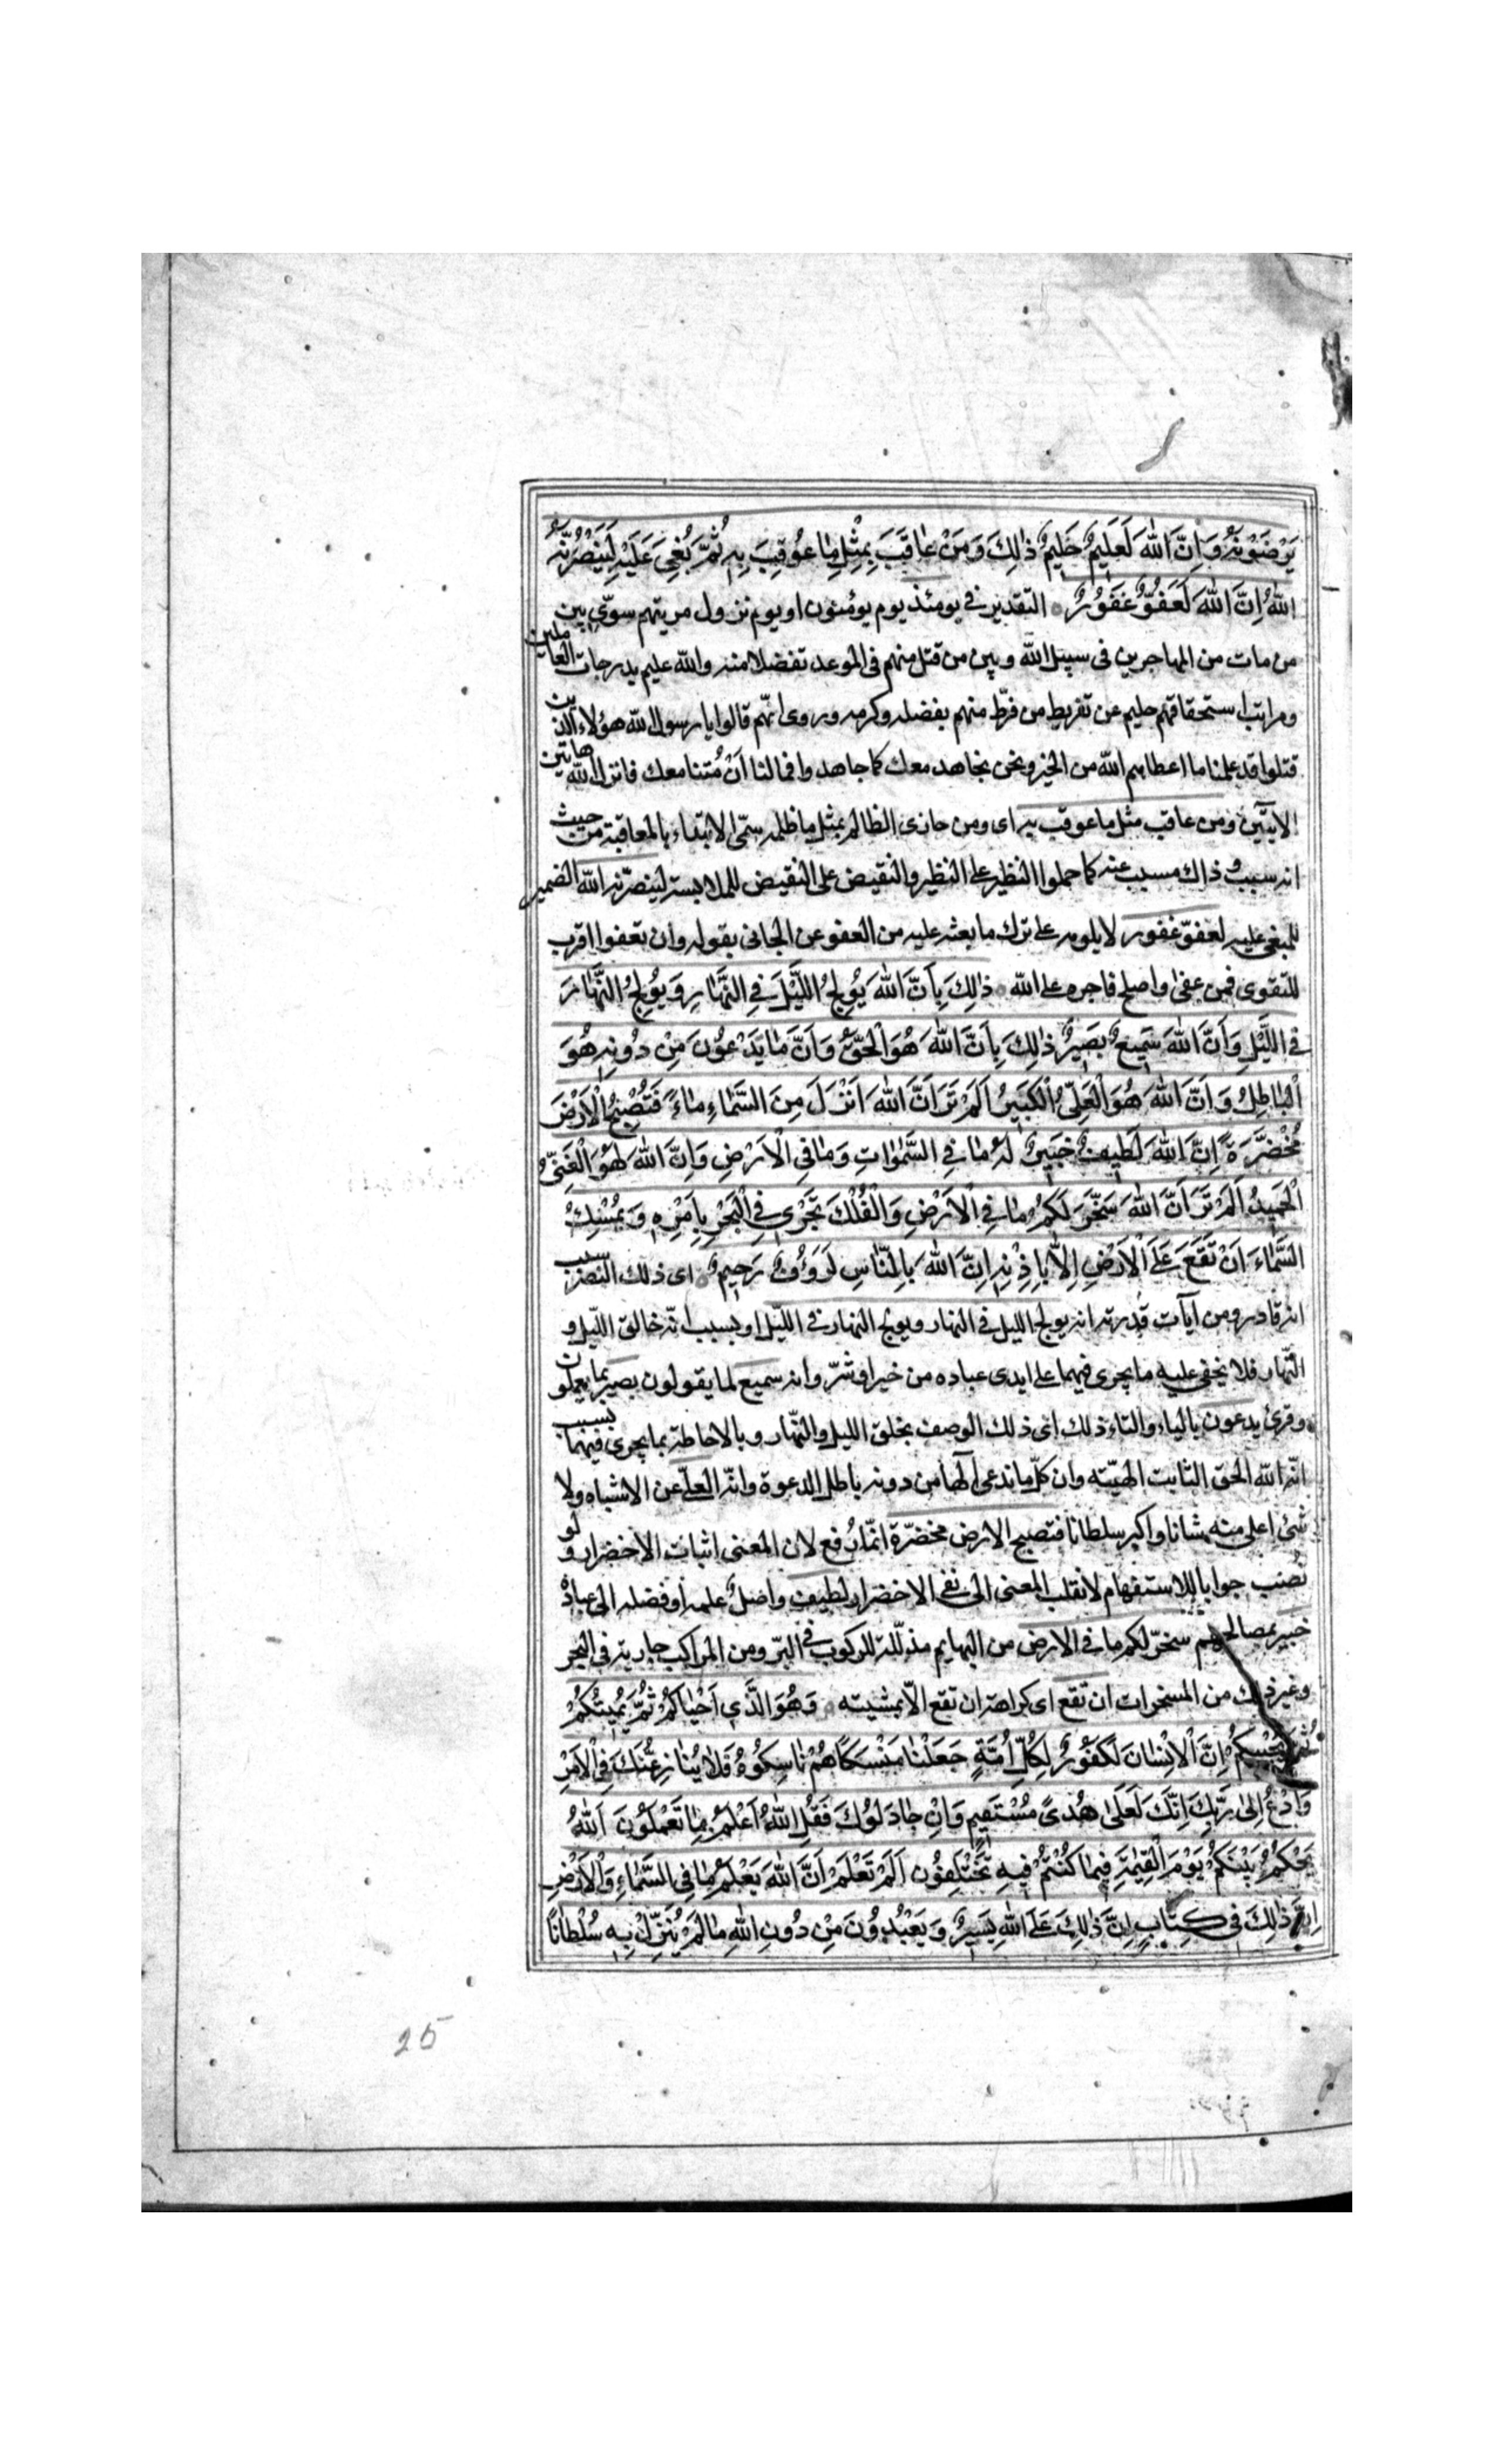 يَرْضَوْنَهُ وَاِنَّ اللهَ لَعَلِيمٌ حَلِيمٌ ذٰلِكَ وَمَنْ عَاقَبَ بِمِثْلِ مٰا عُوقِبَ بِهِ ثُمَّ بُغِيَ عَلَيْهِ لَيَنْصُرَنَّهُ
اللهُ اِنَّ اللهَ لَعَفُوٌّ غَفُورٌ التقدير في يومئذ يوم يؤمنون او يوم نزول مريتهم سوّى بين
من مات من المهاجرين فى سبيل الله وبين من قتل منهم فى الموعد تفضلا منه والله عليم بدرجات العاملين
ومراتب استحقاقهم حليم عن تفريط من فرّط منهم بفضله وكرمه وروى انّهم قالوا يا رسول الله هؤلاء الذين
قتلوا قد علمنا ما اعطاهم الله من الخير ونحن نجاهد معك كما جاهدوا فما لنا اَنْ مُتنا معك فانزل الله هاتين
الايتين ومن عاقب مثل ما عوقب به اى ومن جازى الظالم بمثل ما ظلمه سمّى الابتداء بالمعاقبة من حيث
انه سبب وذاك مسبب عنه كما حملوا النظير على النظير والنقيض على النقيض للملابسة لينصرنه الله الضمير
للمبغى عليه لعفوّ غفور لا يلومه على ترك ما بعثه عليه من العفو عن الجانى بقوله وان تعفوا اقرب
للتقوى فمن عفى واصلح فاجره على الله ذٰلِكَ بِاَنَّ اللهَ يُولِجُ اللَّيْلَ فِي النَّهٰارِ وَيُولِجُ النَّهٰارَ
فِي اللَّيْلِ وَاَنَّ اللهَ سَمِيعٌ بَصِيرٌ ذٰلِكَ بِاَنَّ اللهَ هُوَ الْحَقُّ وَاَنَّ مٰا يَدْعُونَ مِنْ دُونِهِ هُوَ
الْبٰاطِلُ وَاَنَّ اللهَ هُوَ الْعَلِيُّ الْكَبِيرُ اَلَمْ تَرَ اَنَّ اللهَ اَنْزَلَ مِنَ السَّمٰاءِ مٰاءً فَتُصْبِحُ الْاَرْضُ
مُخْضَرَّةً اِنَّ اللهَ لَطِيفٌ خَبِيرٌ لَهُ مٰا فِي السَّمٰوٰاتِ وَمٰا فِي الْاَرْضِ وَاِنَّ اللهَ لَهُوَ الْغَنِيُّ
الْحَمِيدُ اَلَمْ تَرَ اَنَّ اللهَ سَخَّرَ لَكُمْ مٰا فِي الْاَرْضِ وَالْفُلْكَ تَجْرِي فِي الْبَحْرِ بِاَمْرِهِ وَيُمْسِكُ
السَّمٰاءَ اَنْ تَقَعَ عَلَى الْاَرْضِ اِلّٰا بِاِذْنِهِ اِنَّ اللهَ بِالنّٰاسِ لَرَؤُفٌ رَحِيمٌ اى ذلك النصر بسبب
انه قادر ومن آيات قدرته انه يولج الليل فى النهار ويولج النهار فى الليل او بسبب انّه خالق الليل و
النّهار فلا يخفى عليه ما يجرى فيهما على ايدى عباده من خير او شرّ وانه سميع لما يقولون بصير بما يعملون
وقرئ يدعون بالياء والتاء ذلك اى ذلك الوصف بخلق الليل والنّهار وبالاحاطة بما يجرى فيهما بسبب
انّه الله الحق الثابت الهيّته وان كلّ ما تدعى الٓها من دونه باطل الدعوة وانّه العلىّ عن الاشباه ولا
شئ اعلى منه شانا واكبر سلطانا فتصبح الارض مخضرّة انّما رُفع لان المعنى اثبات الاخضرار ولو
نُصب جوابا للاستفهام لانقلب المعنى الى نفى الاخضرار لطيف واصلٌ علمه او فضله الى عباده
خبير بمصالحهم سخرّ لكم ما فى الارض من البهايم مذلّلة للركوب فى البرّ ومن المراكب جارية فى البحر
وغير ذلك من المسخرات ان تقع اى كراهة ان تقع الّا بمشيته وَهُوَ الَّذِي اَحْيٰاكُمْ ثُمَّ يُمِيتُكُمْ
ثُمَّ يُحْيِيكُمْ اِنَّ الْاِنْسٰانَ لَكَفُورٌ لِكُلِّ اُمَّةٍ جَعَلْنٰا مَنْسَكًا هُمْ نٰاسِكُوهُ فَلٰا يُنٰازِعُنَّكَ فِي الْاَمْرِ
وَادْعُ اِلىٰ رَبِّكَ اِنَّكَ لَعَلىٰ هُدىً مُسْتَقِيمٍ وَاِنْ جٰادَلُوكَ فَقُلِ اللهُ اَعْلَمُ بِمٰا تَعْمَلُونَ اَللهُ
يَحْكُمُ بَيْنَكُمْ يَوْمَ الْقِيٰمَةِ فِيمٰا كُنْتُمْ فِيهِ تَخْتَلِفُونَ اَلَمْ تَعْلَمْ اَنَّ اللهَ يَعْلَمُ مٰا فِي السَّمٰاءِ وَالْاَرْضِ
اِنَّ ذٰلِكَ فِي كِتٰابٍ اِنَّ ذٰلِكَ عَلَى اللهِ يَسِيرٌ وَيَعْبُدُونَ مِنْ دُونِ اللهِ مٰا لَمْ يُنَزِّلْ بِهِ سُلْطٰانًا
25